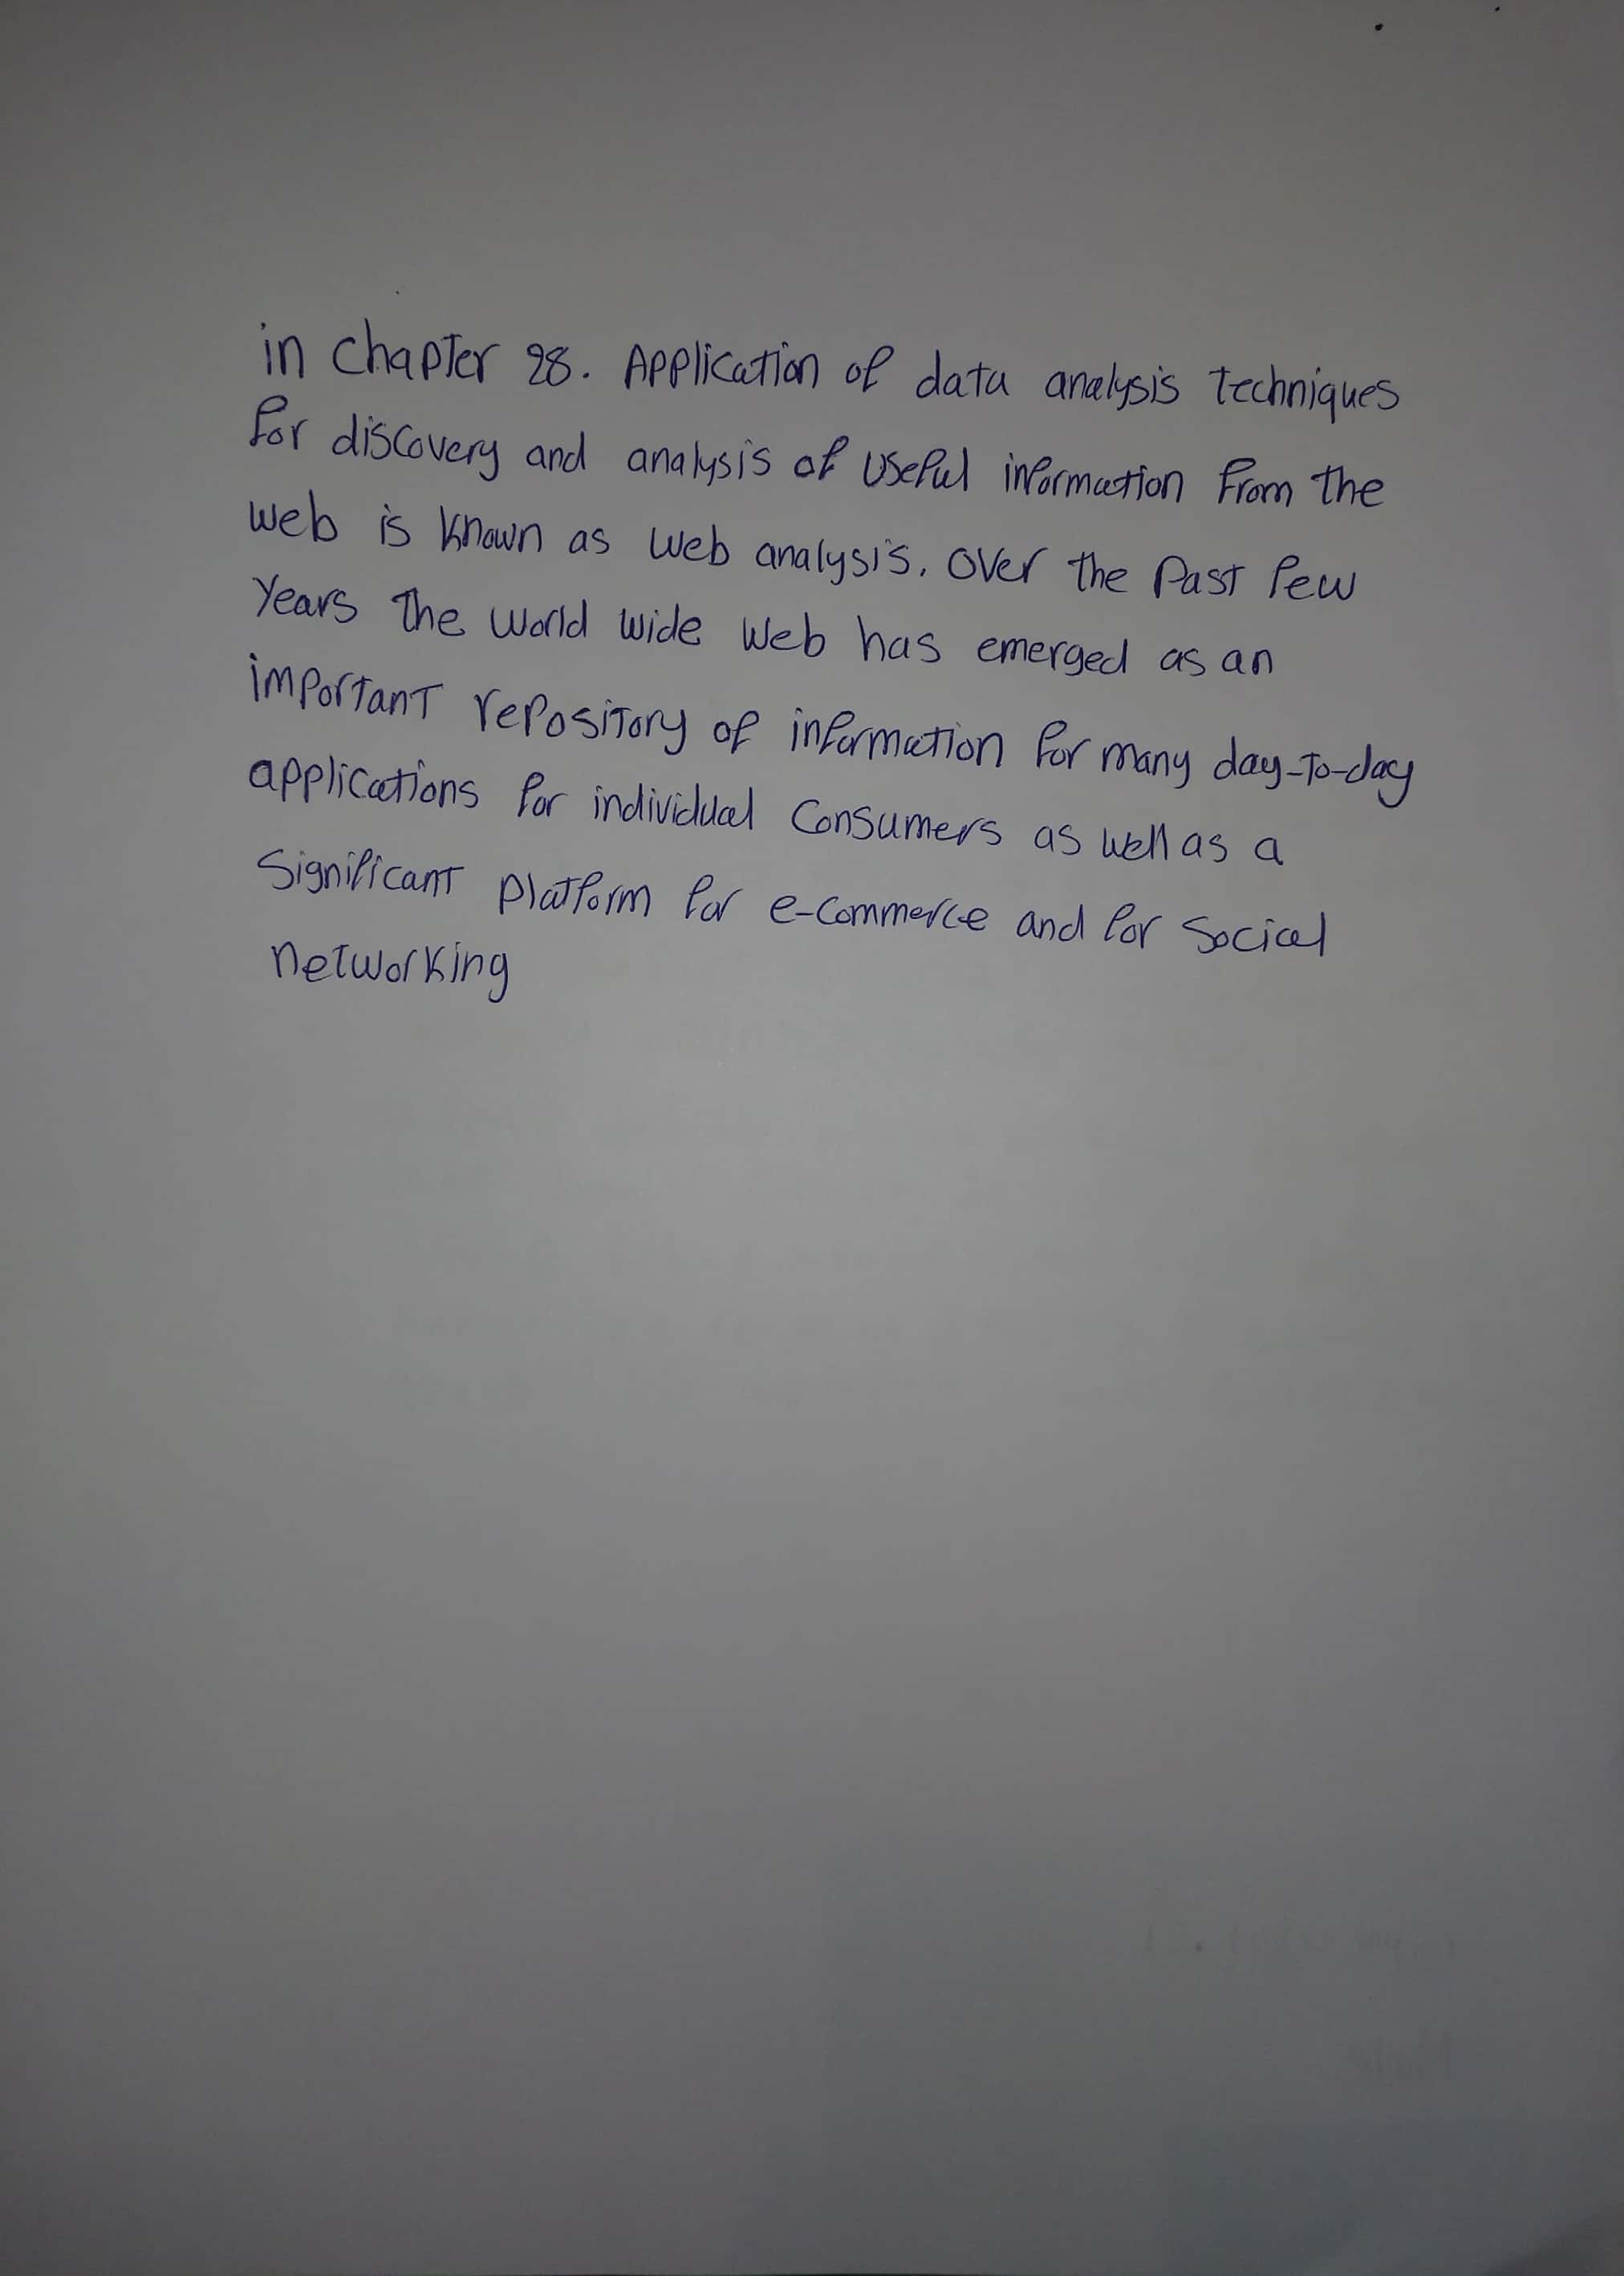 in chapter 28. Application of data analysis techniques
for discovery and analysis of useful information from the
web is known as web analysis. over the past few
years the world wide web has emerged as an
important repository of information for many day-to-day
applications for individual consumers as well as a
significant platform for e-commerce and for social
networking